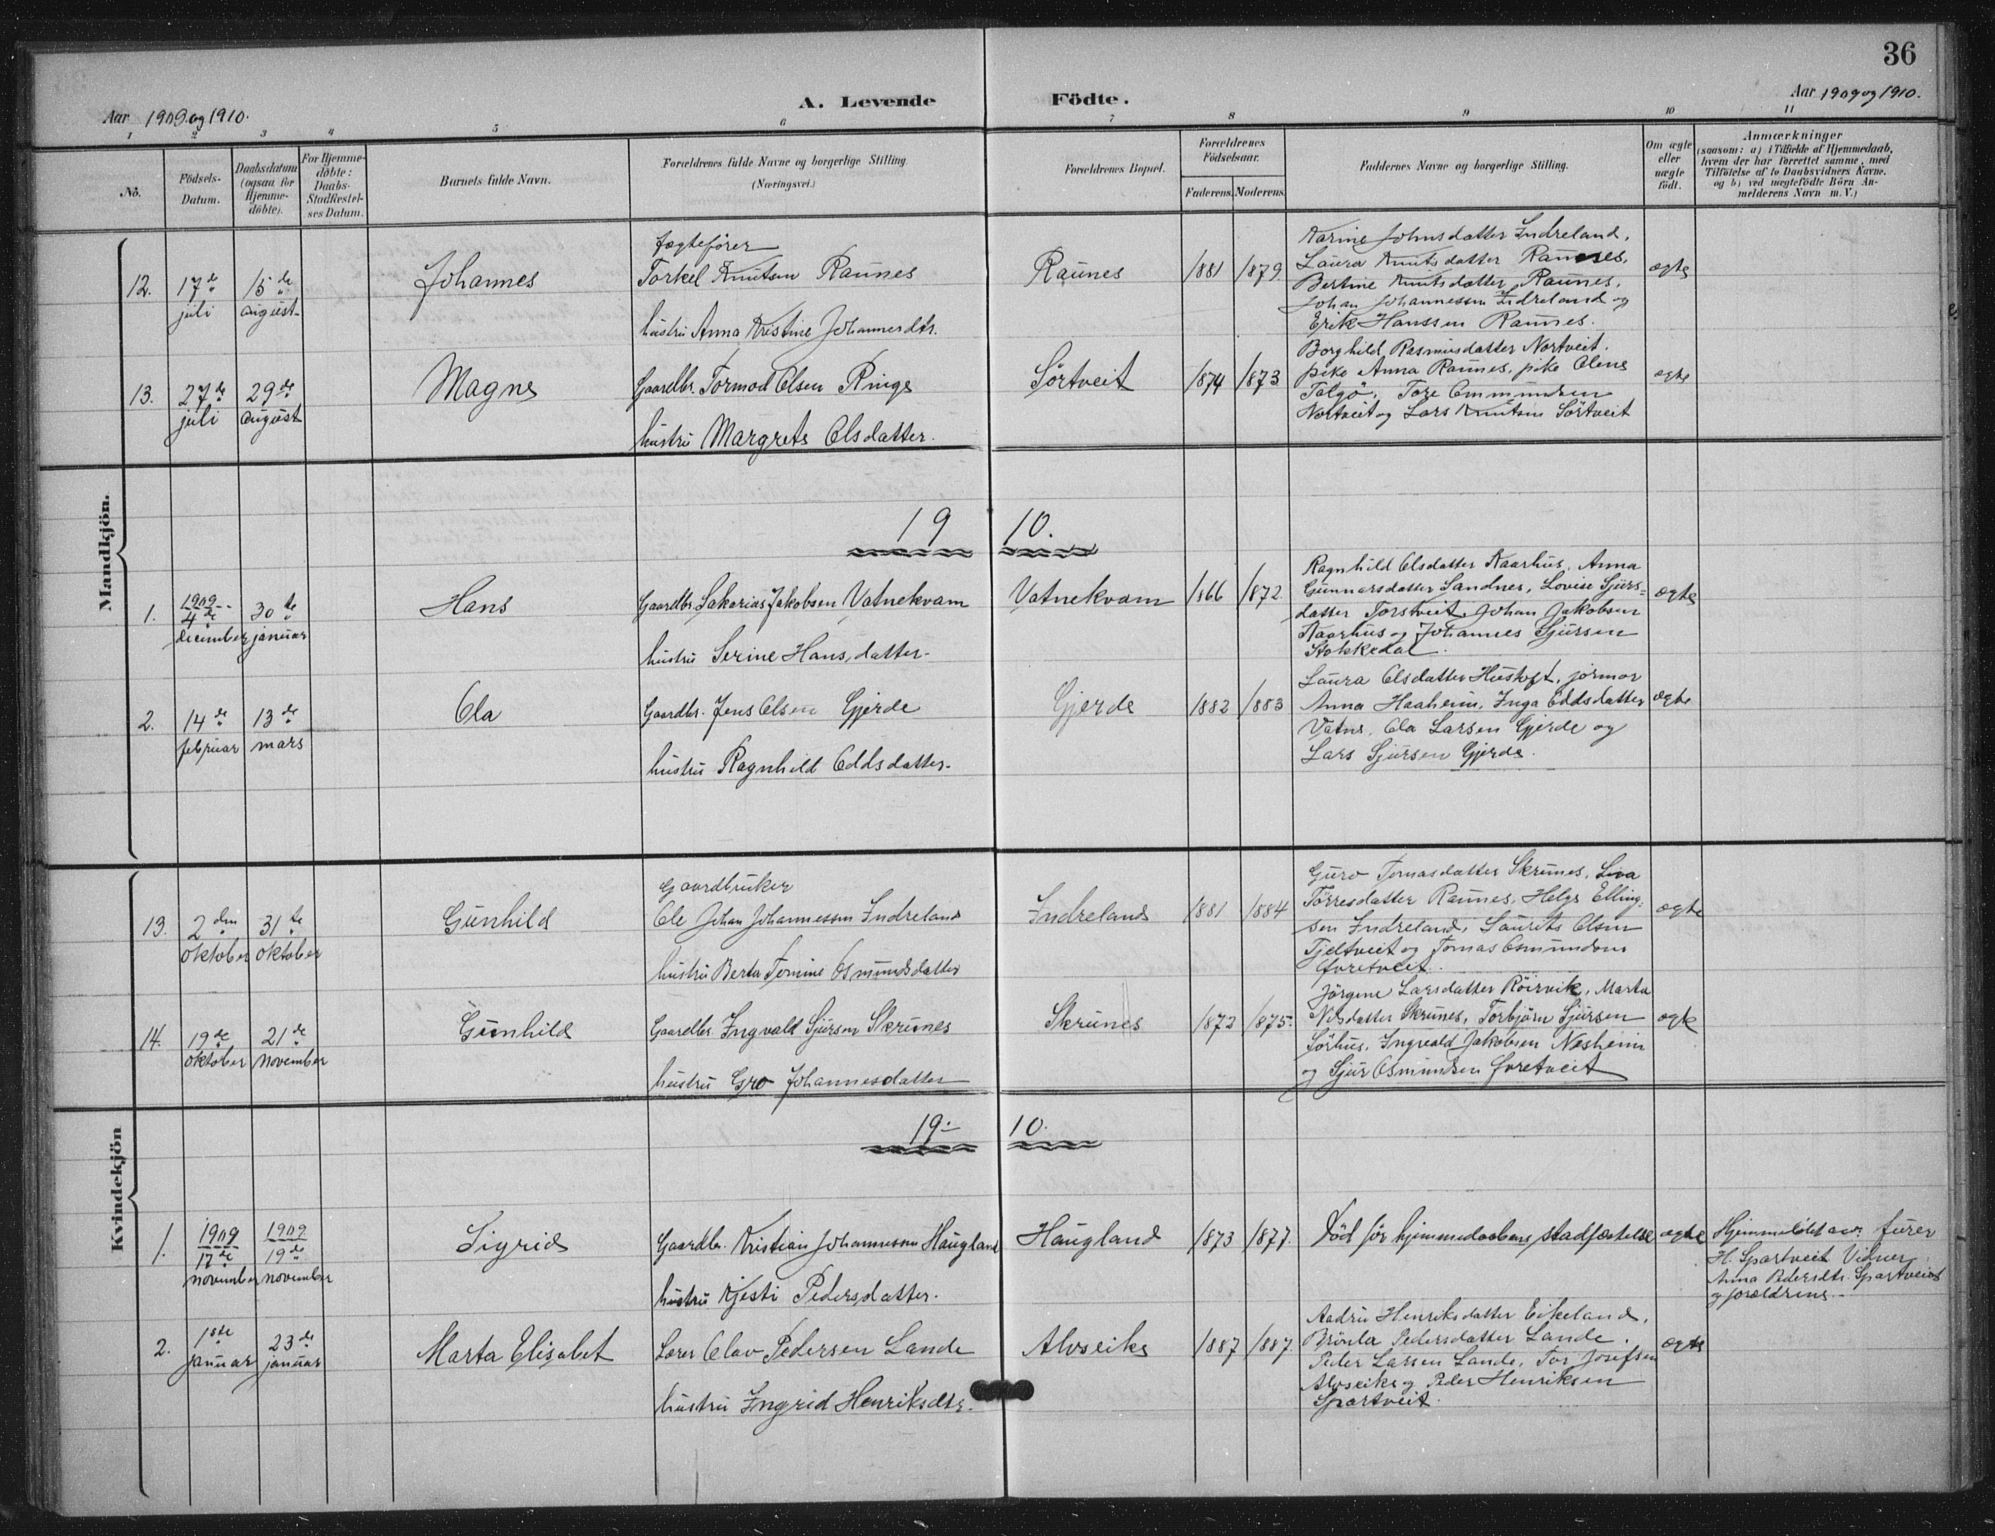 36
A. Levende Födte.
Aar 1909 og 1910.
Aar 1909 og 1910.
1 2 3 4 5 6 7 8 9 10 11
No.
Födsels-
Datum.
Daabsdatum
(ogsaa for
Hjemme-
döbte).
For Hjemme-
döbte:
Daabs-
Stadfæstel-
ses Datum.
Barnets fulde Navn.
Forældrenes fulde Navne og borgerlige Stilling.
(Næringsvei.)
Forældrenes Bopæl.
Forældrenes
Födselsaar.
Faderens. Moderens.
Faddernes Navne og borgerlige Stilling.
Om ægte
eller
uægte
födt.
Anmærkninger
(saasom: a) i Tilfælde af Hjemmedaab,
hvem der har forrettet samme, med
Tilföielse af to Daabsvidners Navne,
og b) ved uægtefödte Börn An-
melderens Navn m. V.)
Mandkjön.
12. 17de juli
15de august
Johannes
fægtefører
Torkel Knutsen Raunes
hustru Anna Kristine Johannesdtr.
Raunes
1881 1879.
Karine Johnsdatter Indreland,
Laura Knutsdatter Raunes,
Bertine Knutsdatter Raunes,
Johan Johannessen Indreland og
Erik Hanssen Raunes.
ægte
13. 27de juli
29de august
Magne
Gaardbr. Tormod Olsen Ringe
hustru Margrete Olsdatter.
Sörtveit
1874 1873
Borghild Rasmusdatter Nortveit.
pike Anna Raunes, pike Olene
Tolgö, Tore Ommundsen
Nortveit og Lars Knutsen Sörtveit
ægte
1910.
1. 1909 4de december
30te januar
Hans
Gaardbr. Sakarias Jakobsen Vatnekvam
hustru Serine Hansdatter.
Vatnekvam
1866 1872.
Ragnhild Olsdatter Kaarhus, Anna
Gunnarsdatter Sandnes, Lovise Sjurs-
datter Torstveit, Johan Jakobsen
Kaarhus og Johannes Sjursen
Stokkedal.
ægte
2. 14de februar
13de mars
Ola
Gaardbr. Jens Olsen Gjerde
hustru Ragnhild Oddsdatter.
Gjerde
1882 1883
Laura Olsdatter Hustoft, jormor
Anna Haaheim, Inga Oddsdatter
Vatne, Ola Larsen Gjerde og
Lars Sjursen Gjerde.
ægte
Kvindekjön
13. 2den oktober
31te oktober
Gunhild
Gaardbruker
Ole Johan Johannessen Indreland
hustru Berta Tomine Osmundsdatter
Indreland
1881 1884
Guro Tomasdatter Skrunes, Liva
Törresdatter Raunes, Helge Elling-
sen Indreland, Laurits Olsen
Tjeltveit og Tomas Osmundsen
Övretveit.
ægte
14. 19de oktober
21de november
Gunhild
Gaardbr. Ingvald Sjursen Skrunes
hustru Gro Johannesdatter
Skrunes
1872 1875.
Jörgene Larsdatter Röirvik, Marta
Nilsdatter Skrunes, Torbjörn Sjursen
Sörhus, Ingvald Jakobsen Nesheim
og Sjur Osmundsen Övretveit
ægte
1910.
1. 1909 17de november
1909 19de november
Sigrid
Gaardbr. Kristian Johannessen Haugland
hustru Kjesti Pedersdatter.
Haugland
1873 1877.
Död för hjemmedaabens stadfæstelse
ægte
Hjemmedöbt av furer
H. Spartveit Vidner
Anna Pedersdtr. Spartveit
og forældrene.
2. 1ste januar
23de januar
Marta Elisabet
Lærer Olav Pedersen Lande
hustru Ingrid Henriksdtr.
Alvseike
1887 1887.
Henriksdatter Eikeland,
Pedersdatter Lande.
Peder Larsen Lande, Tor Josefsen
Alvseike og Peder Henriksen
Spartveit.
ægte